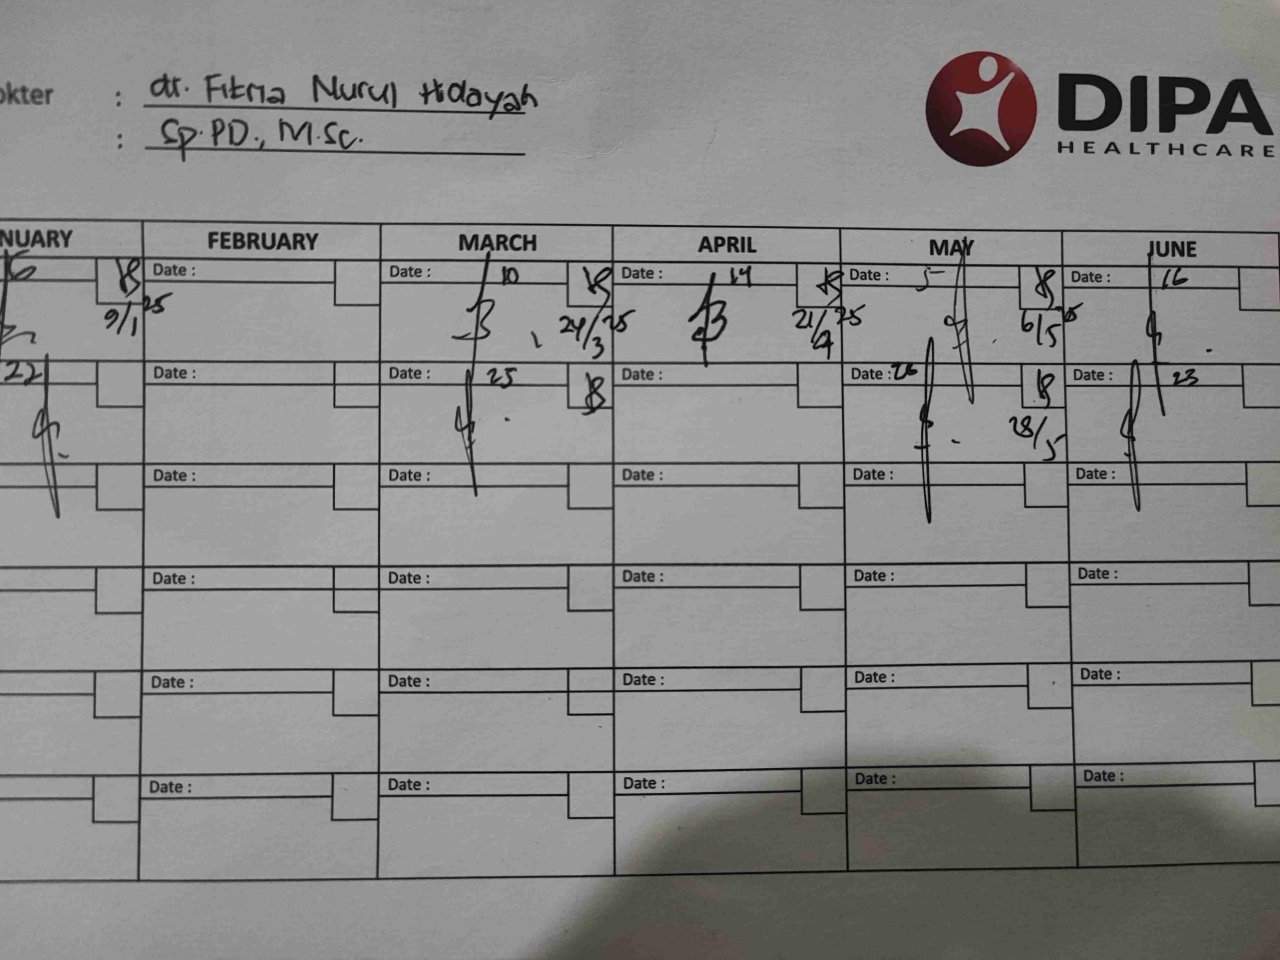 okter : dr. Fitria Nurul Hidayah
: Sp.PD., M.Sc.
DIPA
HEALTHCARE
NUARY FEBRUARY MARCH APRIL MAY JUNE
6 Date : Date : 10 Date : 14 Date : 5 16
9/1 25 24/3 25 21/4 25 6/5 25
22 Date : Date : 25 Date : Date : 26 Date : 23
28/5
Date : Date : Date : Date : Date :
Date : Date : Date : Date : Date :
Date : Date : Date : Date : Date :
Date : Date : Date : Date : Date :